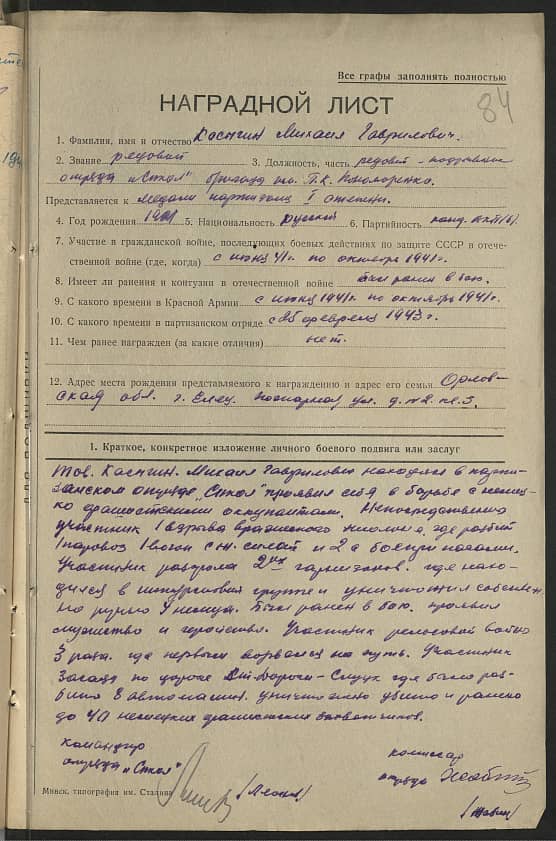 Все графы заполнять полностью
84
НАГРАДНОЙ ЛИСТ
1. Фамилия, имя и отчество Касягин Михаил Гаврилович.
2. Звание рядовой 3. Должность, часть рядовой - подрывник
отряда "Сокол" бригада им. П.К. Пономаренко.
Представляется к медали партизану I степени.
4. Год рождения 5. Национальность русский 6. Партийность канд. ВКП/б/.
7. Участие в гражданской войне, последующих боевых действиях по защите СССР в отече-
ственной войне (где, когда) с июня 41 г. по октябрь 1941 г.
8. Имеет ли ранения и контузии в отечественной войне был ранен в бою.
9. С какого времени в Красной Армии с июня 1941 г. по октябрь 1941 г.
10. С какого времени в партизанском отряде с февраля 1943 г.
11. Чем ранее награжден (за какие отличия) нет.
12. Адрес места рождения представляемого к награждению и адрес его семьи Орлов-
ская обл. г. Елец. Пожарная ул. д. №2. кв. 3.
1. Краткое, конкретное изложение личного боевого подвига или заслуг
Тов. Касягин. Михаил Гаврилович находясь в парти-
занском отряде "Сокол" проявил себя в борьбе с немец-
ко фашистскими оккупантами. Непосредственно
участник 1 взрыва вражеского эшелона, где разбит
1 паровоз 1 вагон с ж. силой и 2 с боеприпасами.
Участник разгрома 2ух гарнизонов. где нахо-
дился в штурмовой группе и уничтожил собствен.
но ручно немца. Был ранен в бою. проявил
мужество и геройство. Участник рельсовой войны
3 раза. где первым ворвался на путь. Участник
засады по дороге Ст-Дороги - Слуцк где было раз-
бито 8 автомашин. уничтожено убито и ранено
до 40 немецких фашистских захватчиков.
командир
отряда "Сокол"
комиссар
отряда
Минск, типография им. Сталина